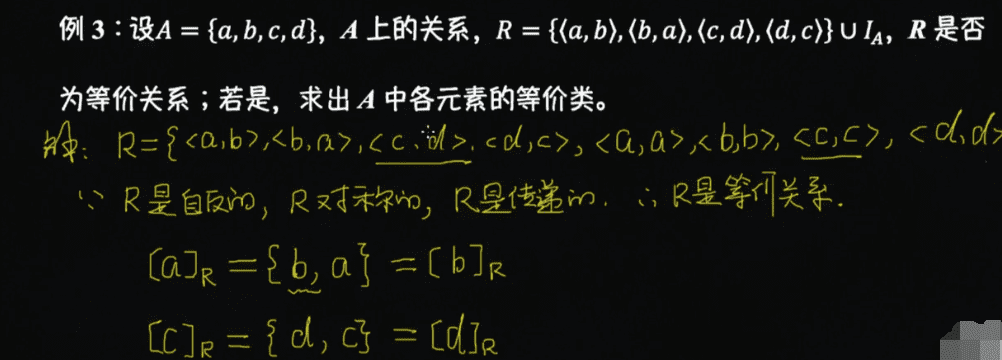 例 3：设A = {a, b, c, d}，A 上的关系，R = {⟨a, b⟩, ⟨b, a⟩, ⟨c, d⟩, ⟨d, c⟩} ∪ I_A，R 是否
为等价关系；若是，求出 A 中各元素的等价类。
解: R={<a,b>,<b,a>,<c,d>,<d,c>,<a,a>,<b,b>,<c,c>,<d,d>
∵ R是自反的, R对称的, R是传递的. ∴ R是等价关系.
[a]_R = {b, a} = [b]_R
[c]_R = {d, c} = [d]_R